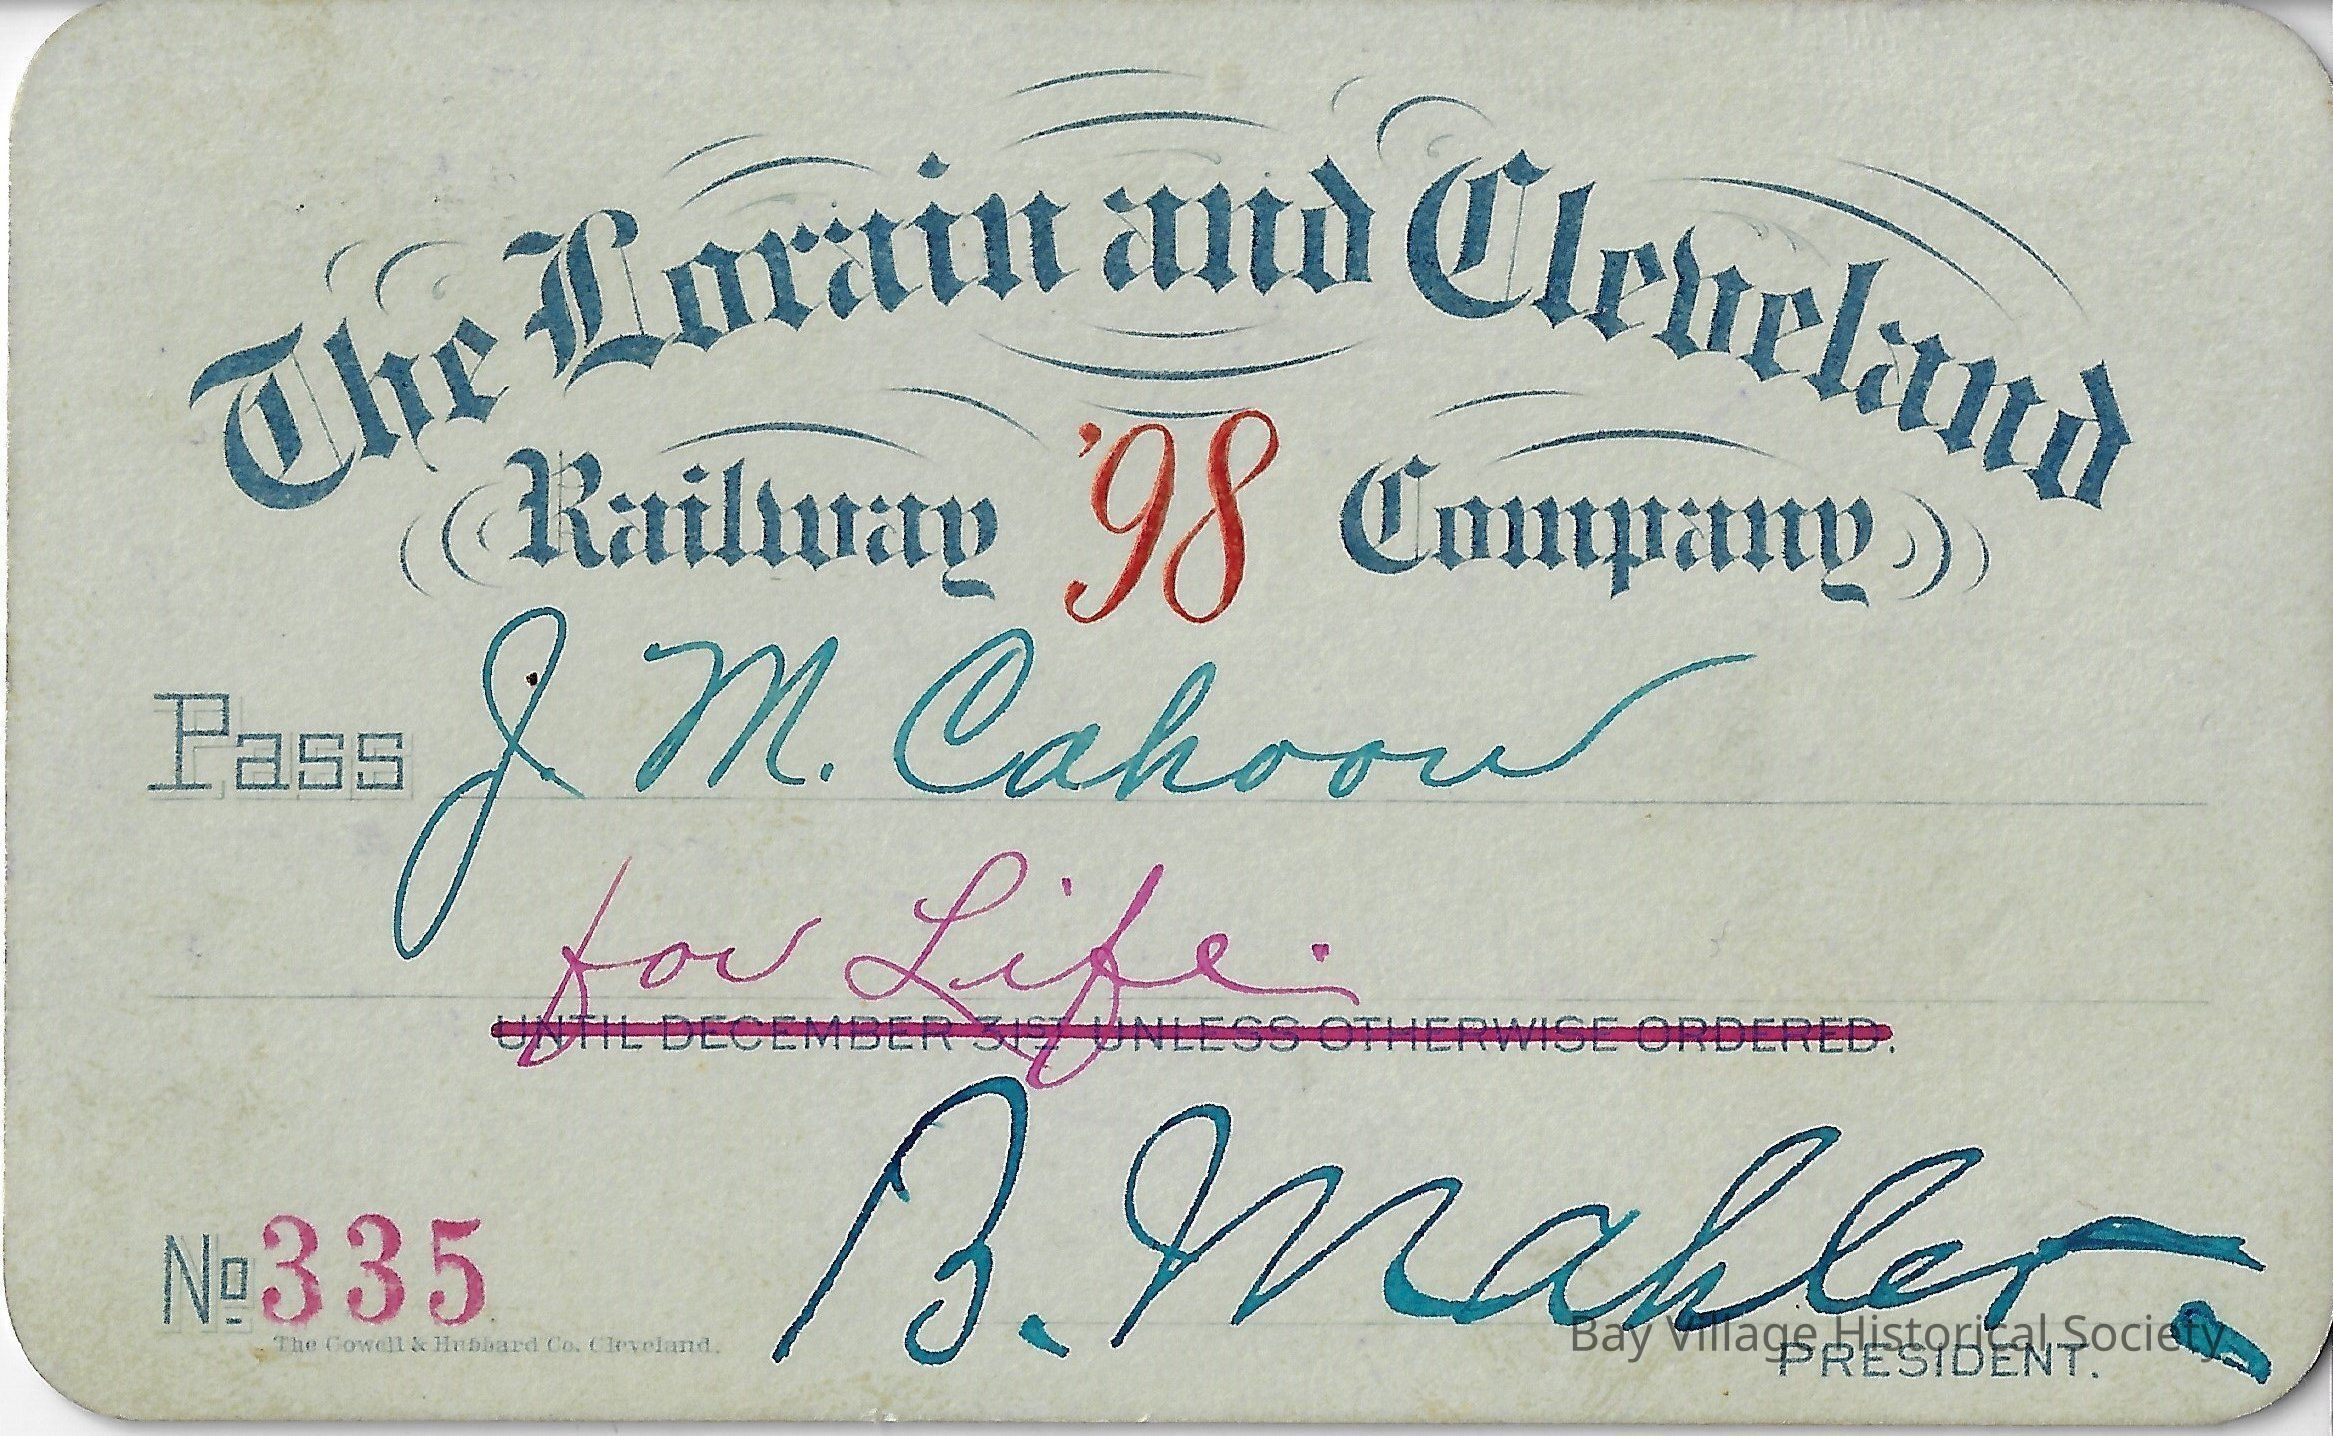 The Lorain and Cleveland
Railway '98 Company
Pass J. M. Cahoon
for Life.
UNTIL DECEMBER 31ST UNLESS OTHERWISE ORDERED.
B. Mahler.
No 335
The Cowell & Hubbard Co. Cleveland.
Bay Village Historical Society
PRESIDENT.